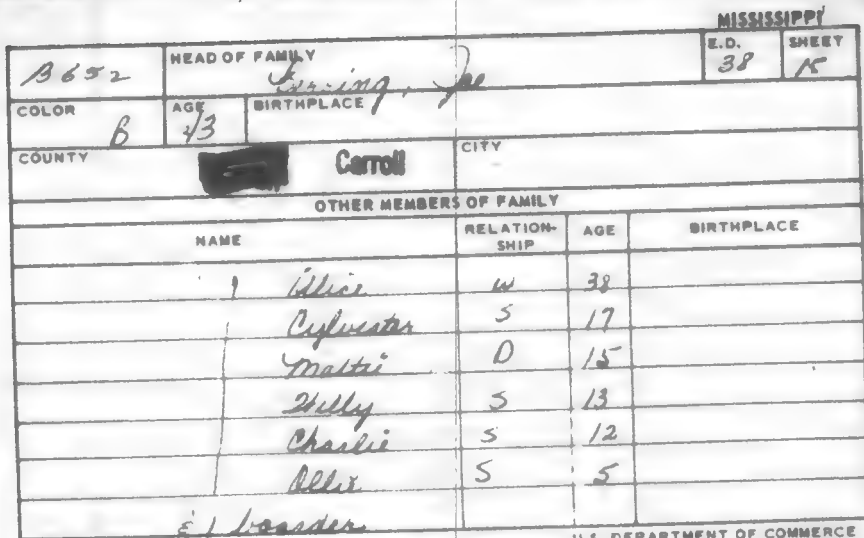 MISSISSIPPI
B652 HEAD OF FAMILY Joe E.D. 38 SHEET 15
COLOR B AGE 43 BIRTHPLACE
COUNTY Carroll CITY
OTHER MEMBERS OF FAMILY
NAME RELATION-SHIP AGE BIRTHPLACE
Alice W 38
Cylvester S 17
Mattie D 15
Willy S 13
Charlie S 12
Ollie S 5
& 1 boarder
U.S. DEPARTMENT OF COMMERCE